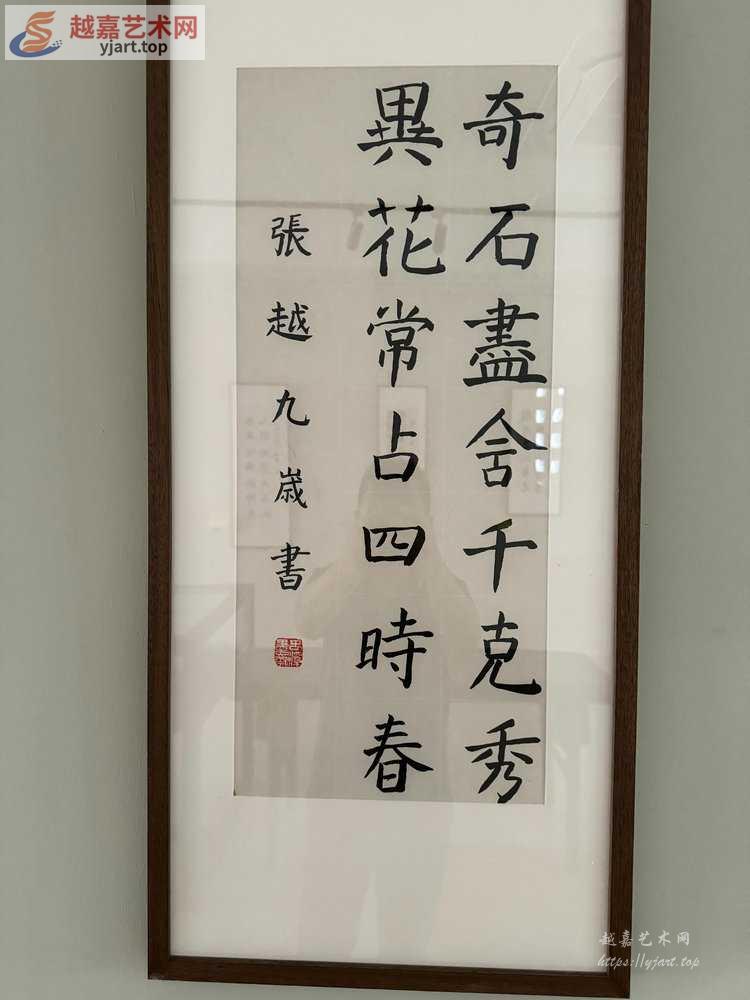 越嘉艺术网
yjart.top
奇石盡舍千克秀
異花常占四時春
張越九歲書
越嘉艺术网
https://yjart.top